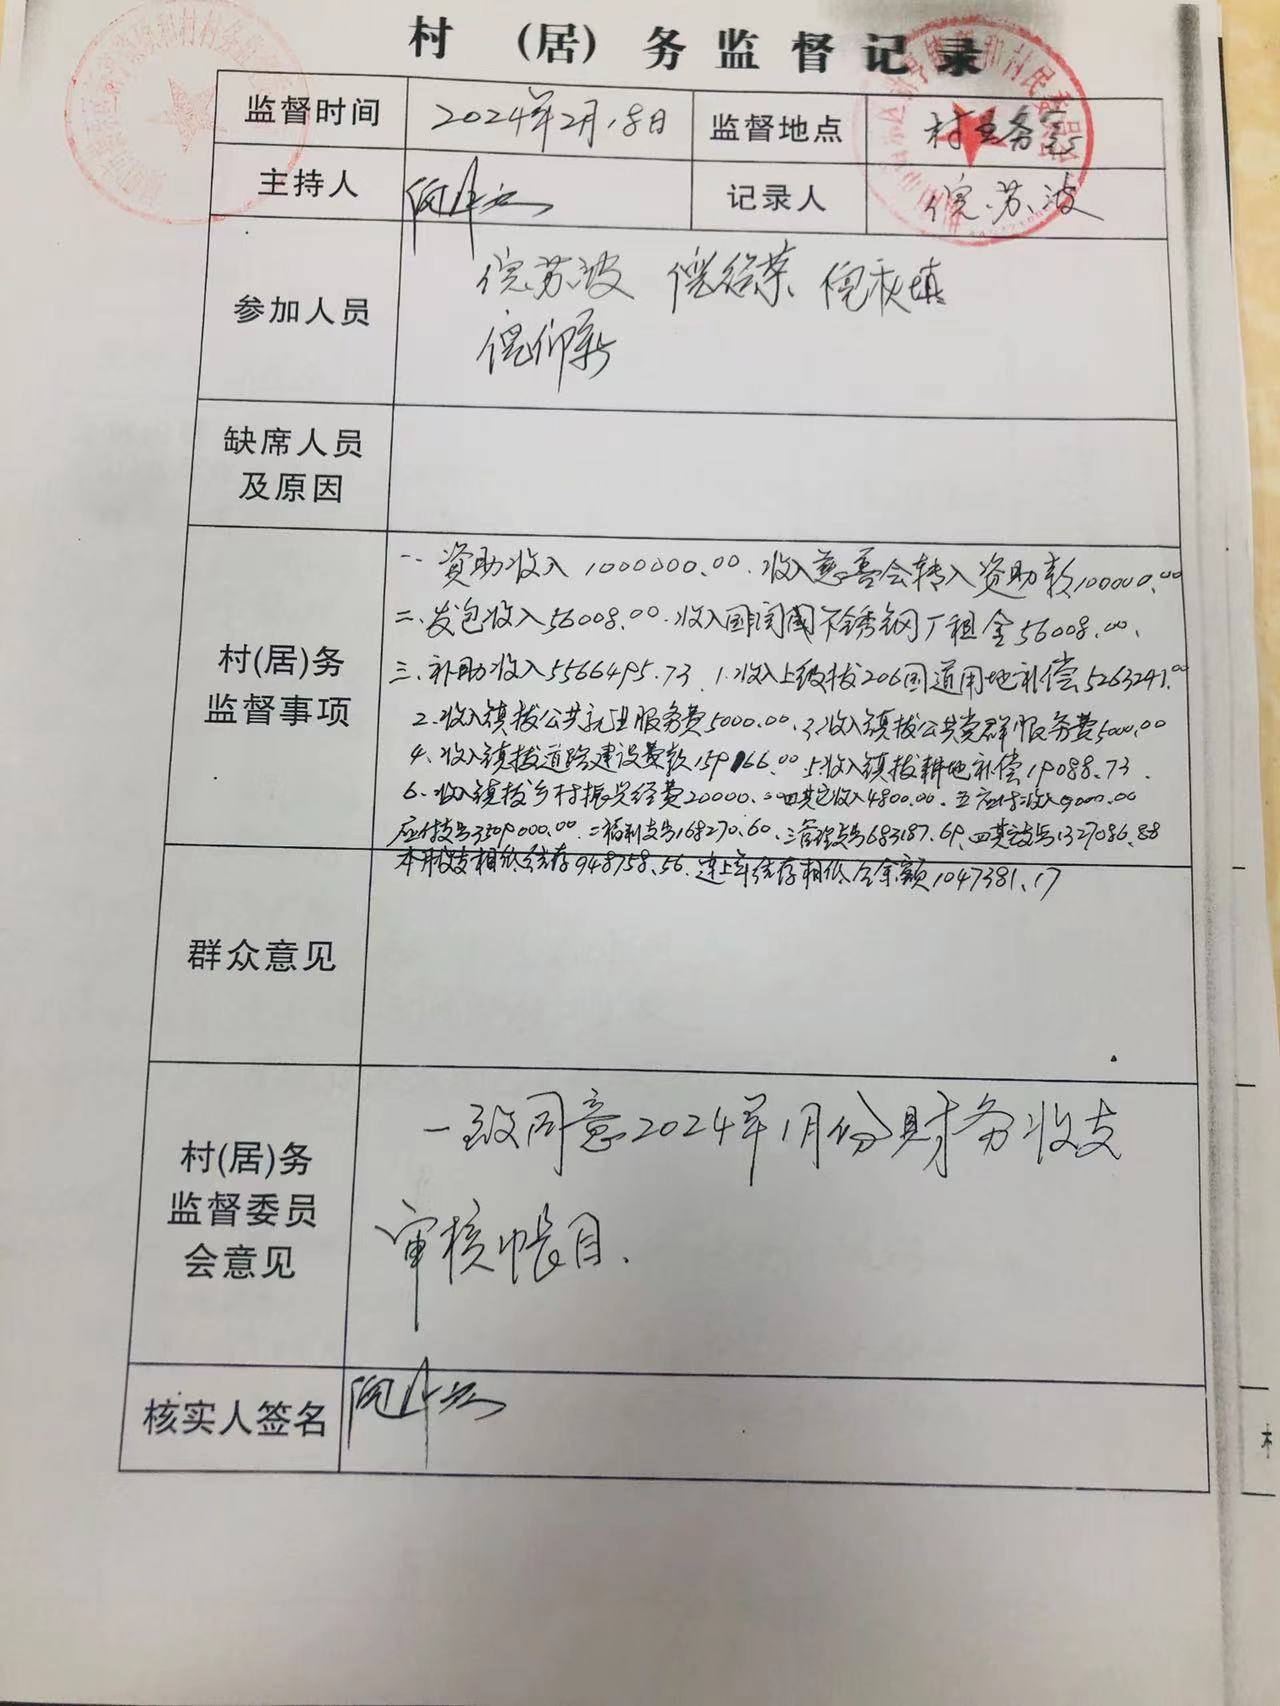 村（居）务监督记录
监督时间 2024年2月18日 监督地点 村五务室
主持人 记录人 倪苏波
参加人员 倪苏波 倪 荣 倪秋填
倪仰新
缺席人员
及原因
村(居)务
监督事项
一、资助收入1000000.00.收入慈善会转入资助款100000.00
二、发包收入56008.00.收入国 不锈钢厂租金56008.00、
三、补助收入5566495.73 1.收入上级拔206国道用地补偿5263241.00
2.收入镇拔公共就业服务费5000.00.3.收入镇拔公共党群服务费5000.00
4、收入镇拔道路建设费款159166.00 5.收入镇拔耕地补偿19088.73.
6、收入镇拔乡村振兴经费20000.00四其它收入4800.00.五应付收入9000.00
应付支出3509000.00.二福利支出168270.60、三管理支出683187.69、四其支出1327086.88
本月收支相低结存948758.56.连上年结存相低 余额1047381.17
群众意见
村(居)务
监督委员
会意见
一致同意2024年1月份财务收支
审核帐目.
核实人签名